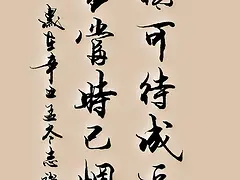 情可待成追
當時已惘
歲在辛丑孟冬志